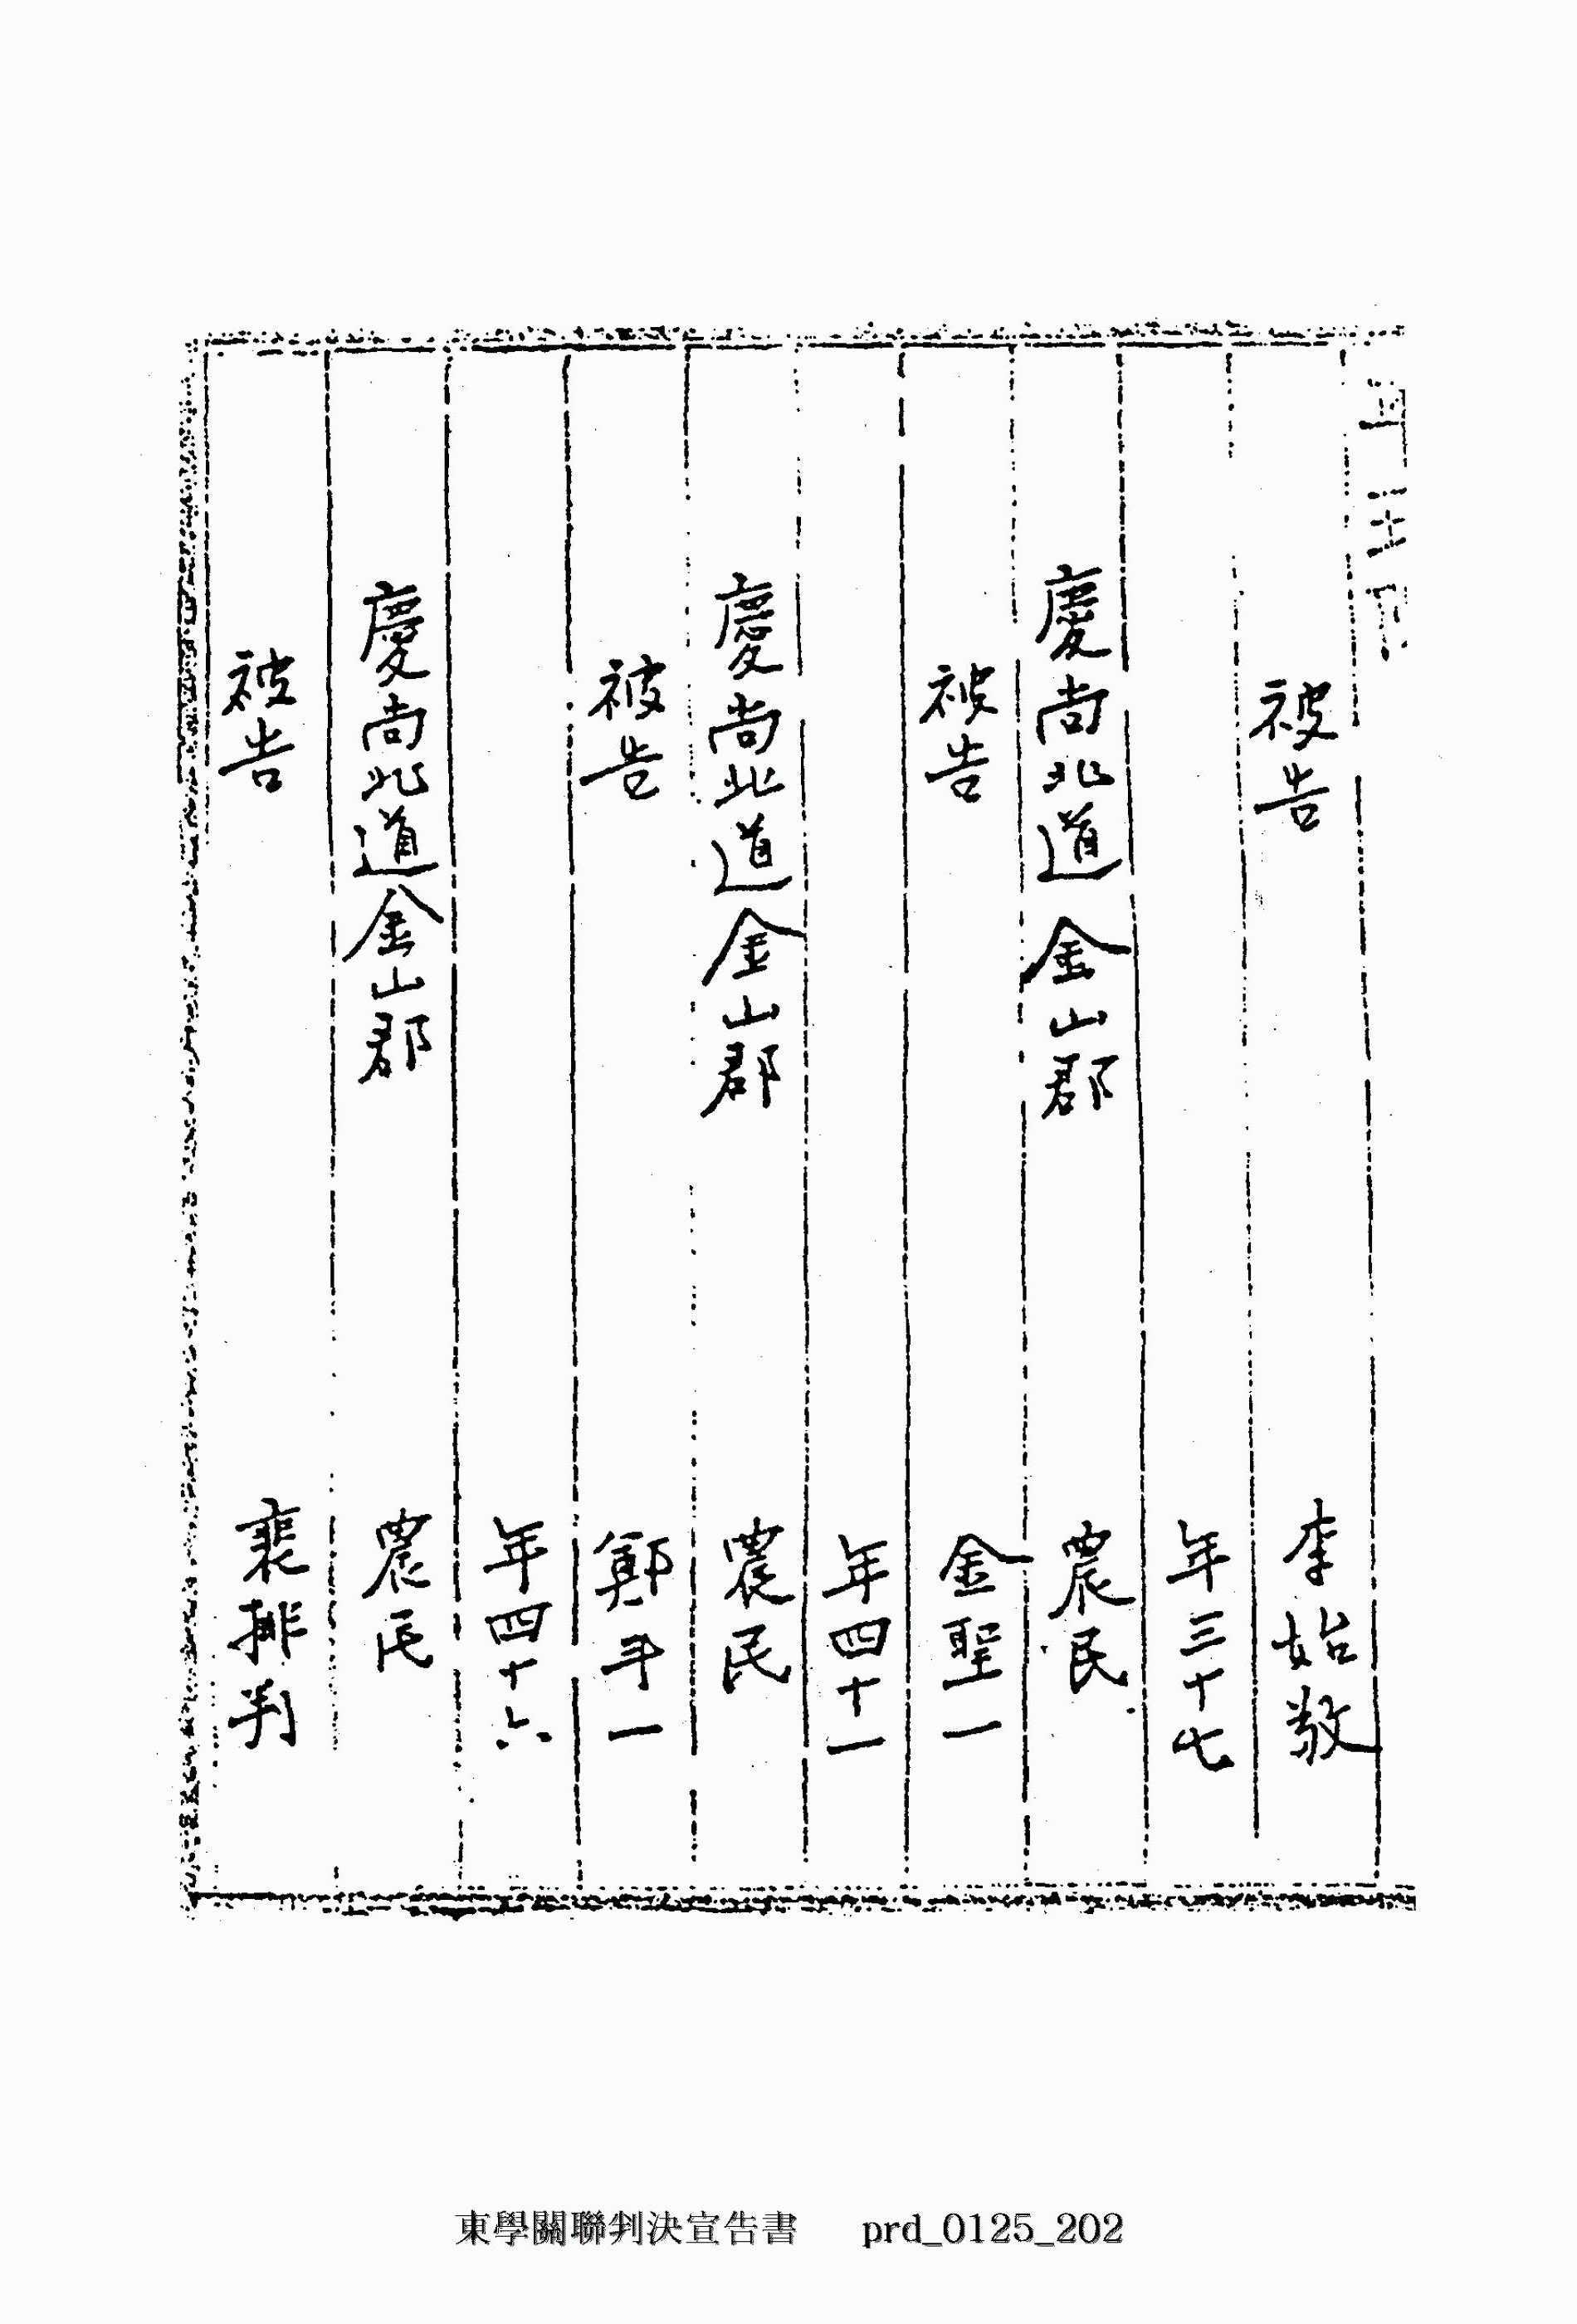 被告 李始敬
年三十七
慶尚北道金山郡 農民
被告 金聖一
年四十一
慶尚北道金山郡 農民
被告 鄭斗一
年四十六
慶尚北道金山郡 農民
被告 裵排判
東學關聯判決宣告書 prd_0125_202